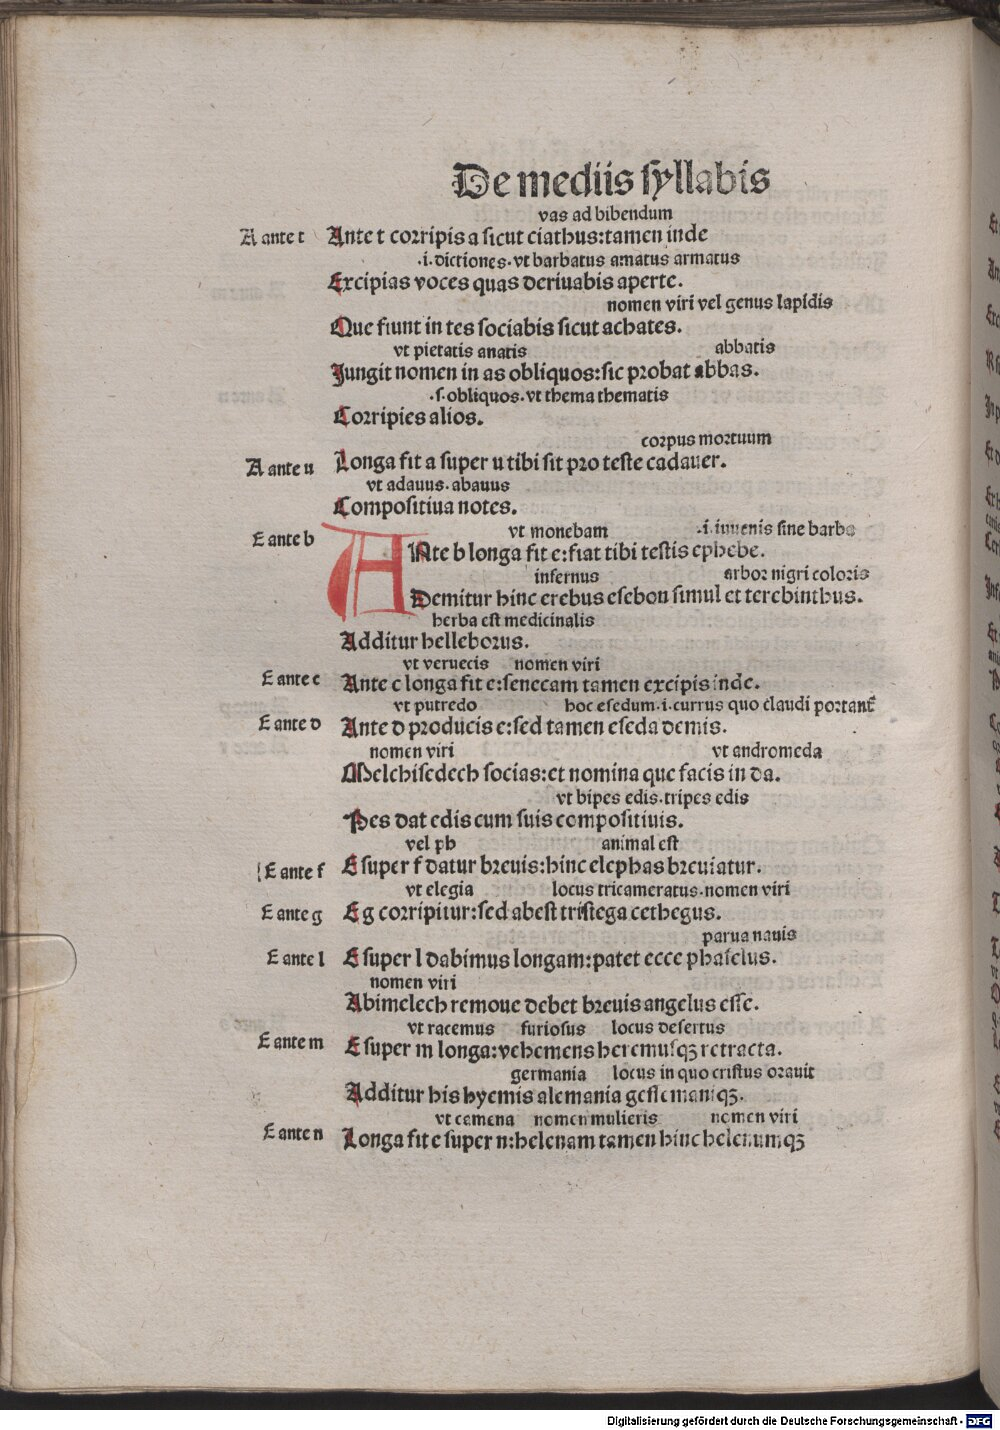 De mediis syllabis
vas ad bibendum
A ante t Ante t corripis a sicut ciathus:tamen inde
.i. dictiones. vt barbatus amatus armatus
Excipias voces quas deriuabis aperte.
nomen viri vel genus lapidis
Que fiunt in tes sociabis sicut achates.
vt pietatis anatis abbatis
Jungit nomen in as obliquos:sic probat abbas.
.s. obliquos. vt thema thematis
Corripies alios.
corpus mortuum
A ante u Longa fit a super u tibi sit pro teste cadauer.
vt adauus. abauus
Compositiua notes.
vt monebam .i. iuuenis sine barba
E ante b ANte b longa fit e:fiat tibi testis ephebe.
infernus arbor nigri coloris
Demitur hinc erebus esebon simul et terebinthus.
herba est medicinalis
Additur helleborus.
vt veruecis nomen viri
E ante c Ante c longa fit e:senecam tamen excipis inde.
vt putredo hoc esedum .i. currus quo claudi portant̄
E ante d Ante d producis e:sed tamen eseda demis.
nomen viri vt andromeda
Melchisedech socias:et nomina que facis in da.
vt bipes edis.tripes edis
Pes dat edis cum suis compositiuis.
vel ph animal est
E ante f E super f datur breuis:hinc elephas breuiatur.
vt elegia locus tricameratus.nomen viri
E ante g E g corripitur:sed abest tristega cethegus.
parua nauis
E ante l E super l dabimus longam:patet ecce phaselus.
nomen viri
Abimelech remoue debet breuis angelus esse.
vt racemus furiosus locus desertus
E ante m E super m longa:vehemens heremusqꝫ retracta.
germania locus in quo cristus orauit
Additur his hyemis alemania gessemaniqꝫ.
vt camena nomen mulieris nomen viri
E ante n Longa fit e super n:helenam tamen hinc helenumqꝫ
Digitalisierung gefördert durch die Deutsche Forschungsgemeinschaft - DFG